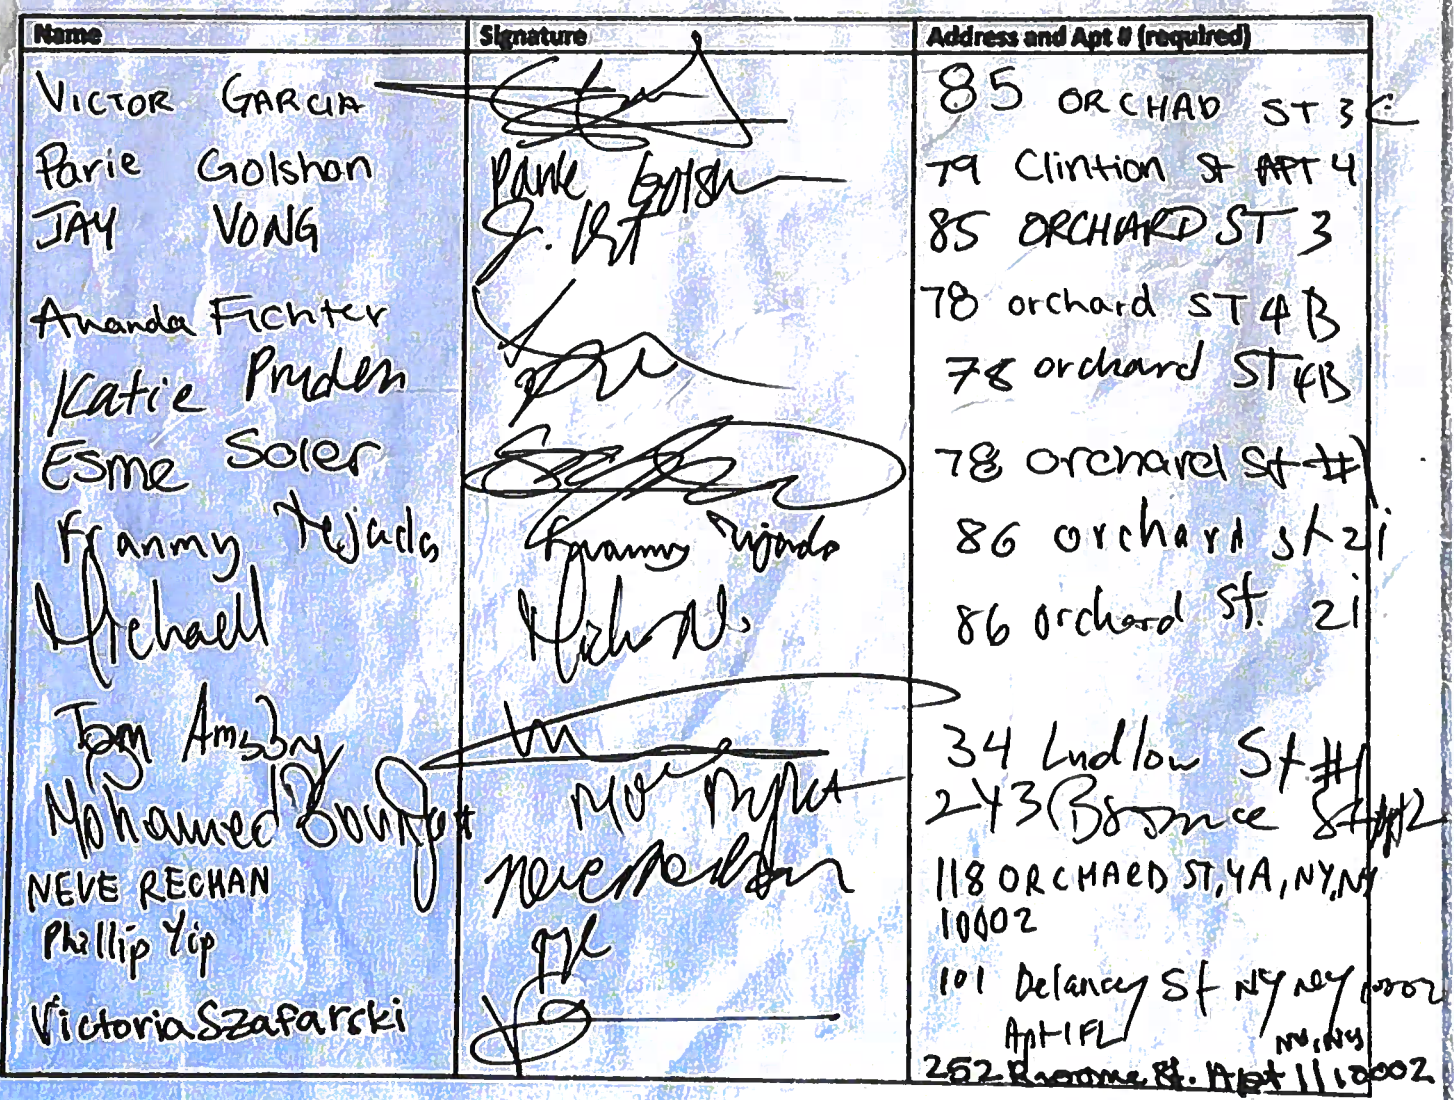 Name Signature Address and Apt # (required)
VICTOR GARCIA 85 ORCHAD ST 3C
Parie Golshan Parie Golsh 79 Clintion St APT 4
JAY VONG 85 ORCHARD ST 3
Amanda Fichter 78 orchard ST 4B
Katie Pruden 78 orchard ST 4B
Esme Soler 78 orchard St #1
Franmy Tejada Franmy Tejada 86 orchard st 2i
Michaell 86 orchard St. 2i
Tom 34 Ludlow St #1
Mohamed 243 St Apt 2
NEVE RECHAN 118 ORCHARD ST, 4A, NY, NY
10002
Phillip Yip 101 Delancey St NY NY 10002
Apt 1FL
Victoria Szafarski NY, NY
252 Broome St. Apt 11 10002